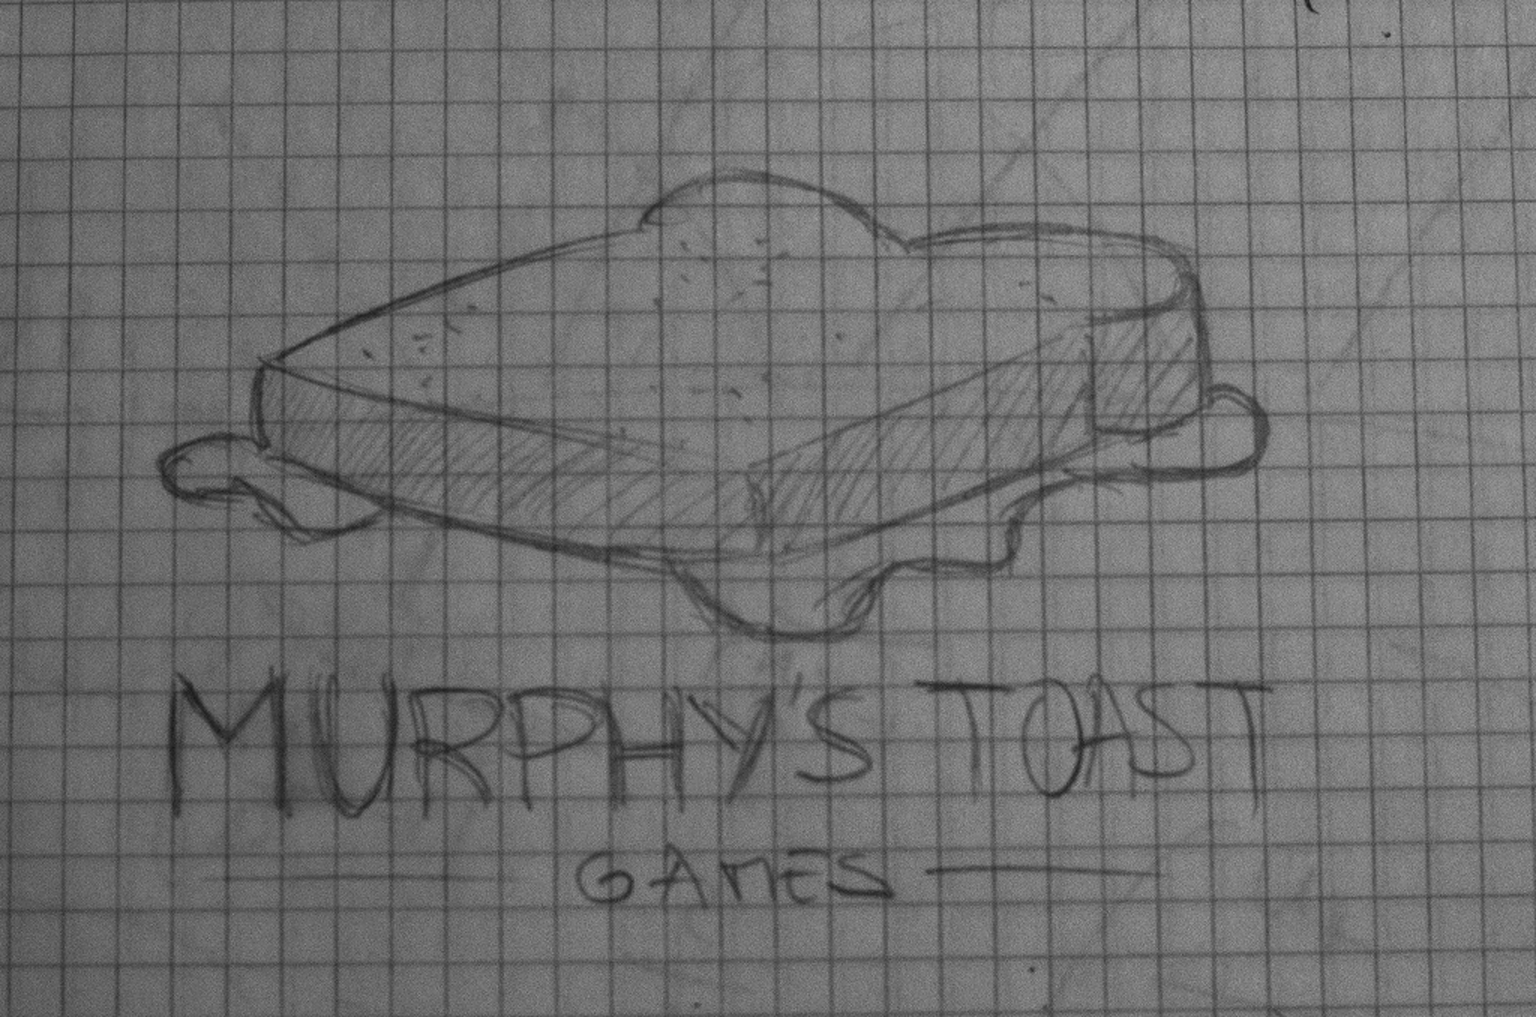 MURPHY'S TOAST
GAMES